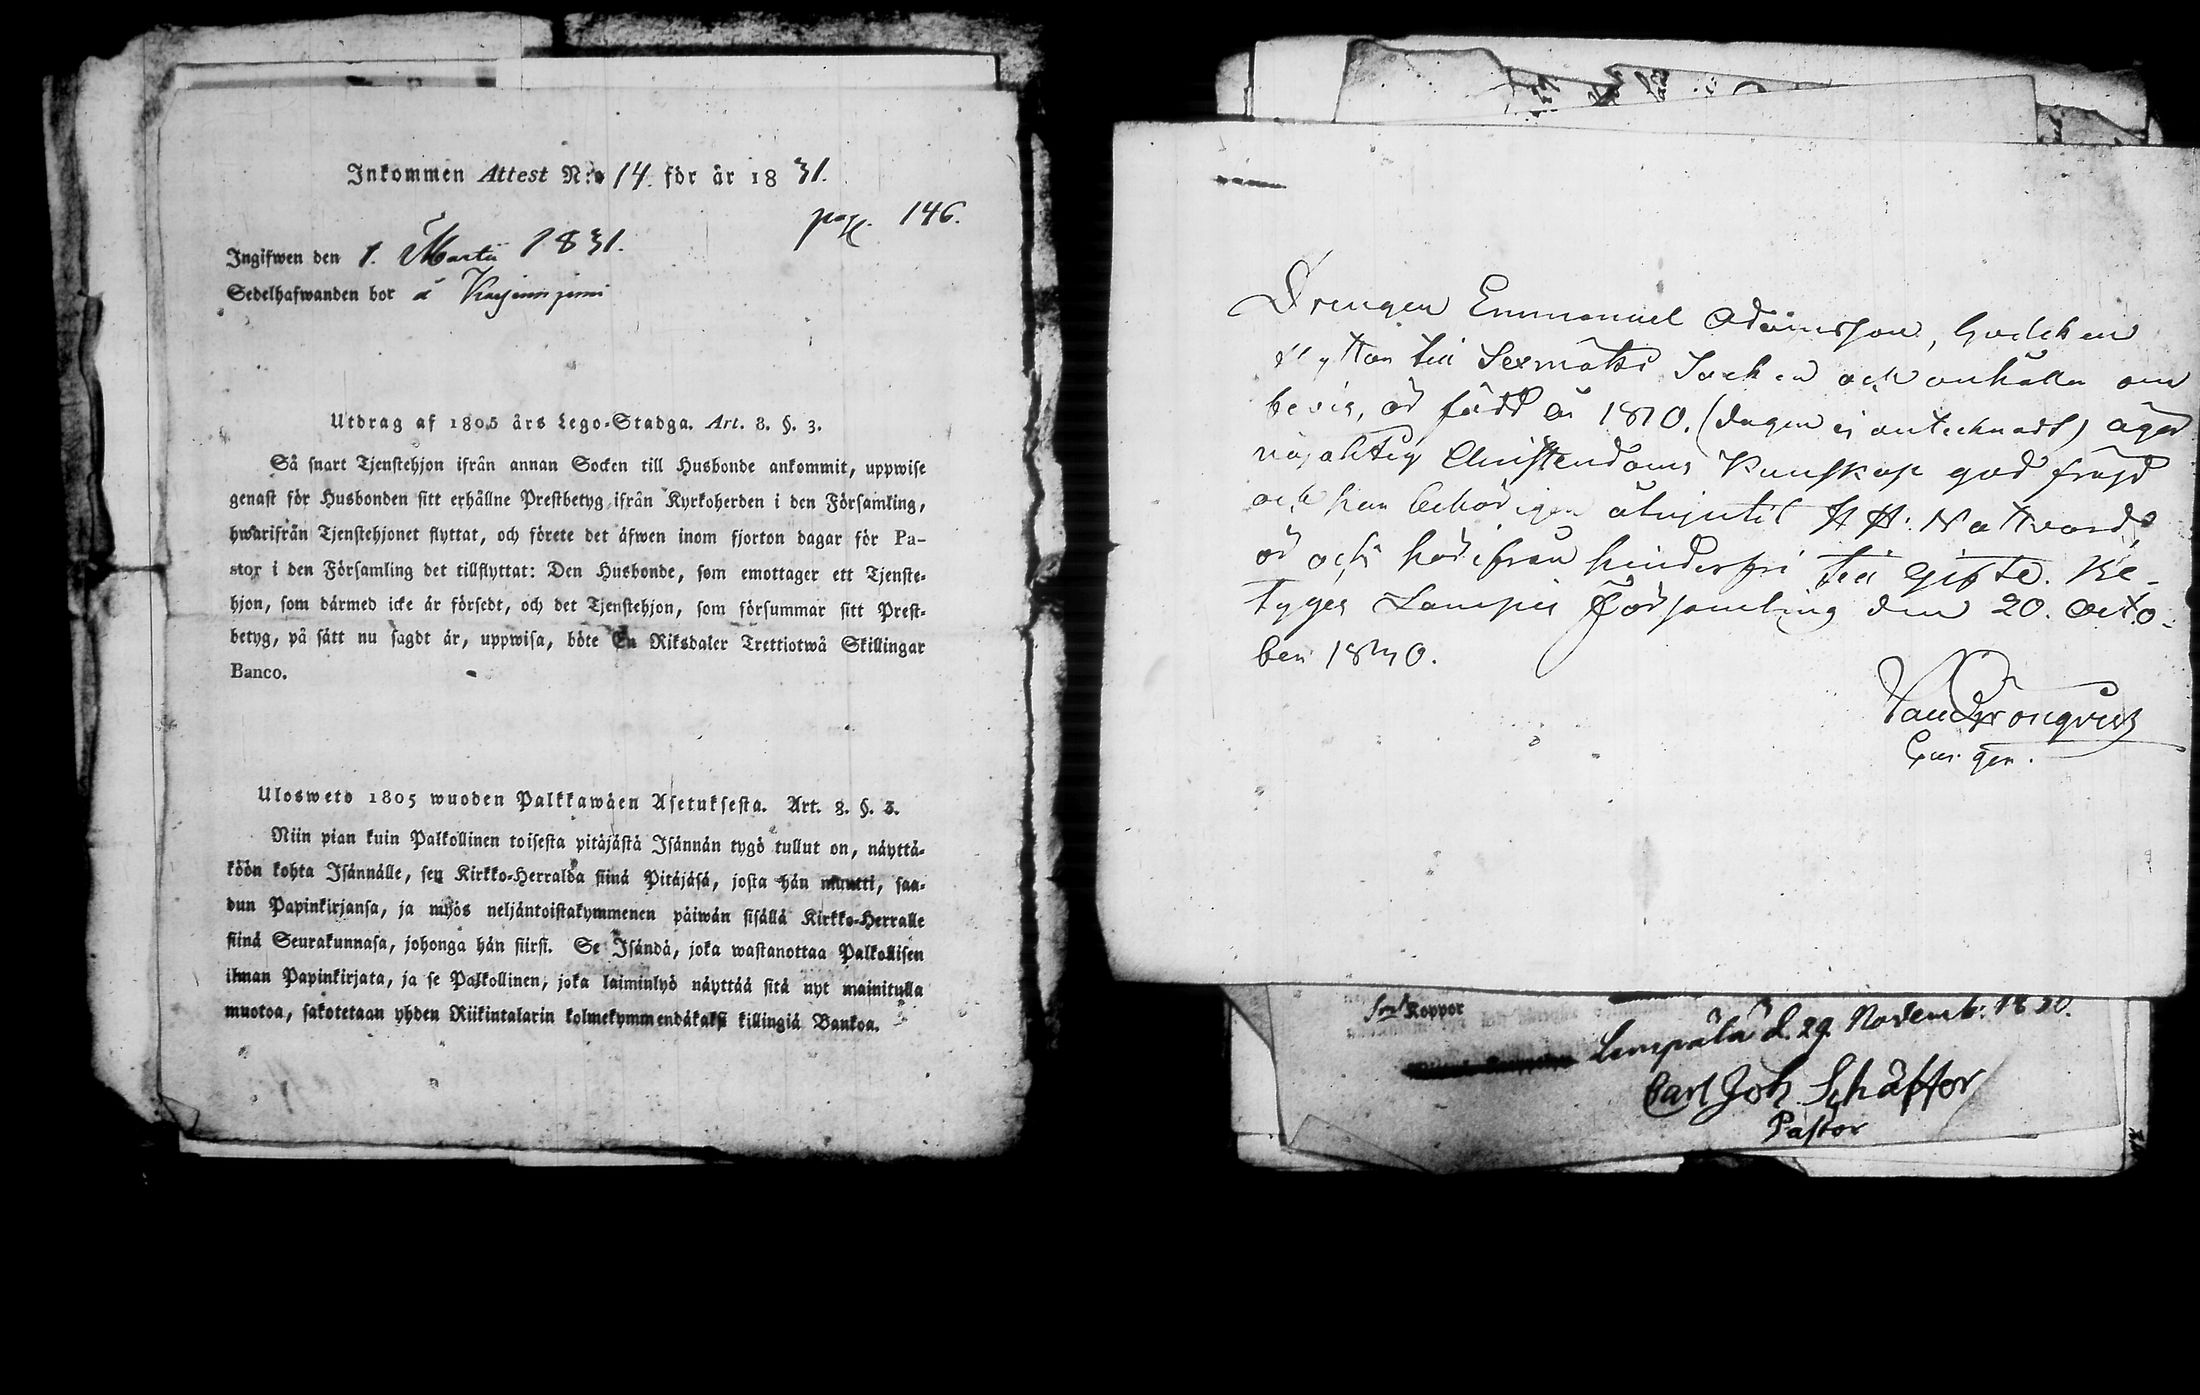 Inkommen Attest N:o 14. för år 1831.
pag. 146.
Ingifwen den 1. Martii 1831.
Sedelhafwanden bor å
Utdrag af 1805 års Lego-Stadga. Art. 8. §. 3.
Så snart Tjenstehjon ifrån annan Socken till Husbonde ankommit, uppwise
genast för Husbonden sitt erhållne Prestbetyg ifrån Kyrkoherden i den Församling,
hwarifrån Tjenstehjonet flyttat, och förete det äfwen inom fjorton dagar för Pa-
stor i den Församling det tillflyttat: Den Husbonde, som emottager ett Tjenste-
hjon, som därmed icke är försedt, och det Tjenstehjon, som försummar sitt Prest-
betyg, på sätt nu sagdt är, uppwisa, böte En Riksdaler Trettiotwå Skillingar
Banco.
Ulosweto 1805 wuoden Palkkawäen Asetuksesta. Art. 8. §. 3.
Niin pian kuin Palkollinen toisesta pitäjästä Isännän tygö tullut on, näyttä-
köön kohta Isännälle, sen Kirkko-Herralda siinä Pitäjäsä, josta hän muutti, saa-
dun Papinkirjansa, ja myös neljäntoistakymmenen päiwän sisällä Kirkko-Herralle
siinä Seurakunnasa, johonga hän siirsi. Se Isändä, joka wastanottaa Palkollisen
ilman Papinkirjata, ja se Palkollinen, joka laiminlyö näyttää sitä nyt mainitulla
muotoa, sakotetaan yhden Riikintalarin kolmekymmendäkaksi killingiä Bankoa.
Drengen Emmanuel Adamsson, hvilken
flyttar till Sexmäki Socken och anhåller om
bevis, är född år 1810. (dagen ej antecknadt) äger
nöjaktig Christendoms Kunskap god frejd
och har behörigen åtnjutit H H: Nattvard,
är och härifrån hinderfri till Gifte. Be-
tyges Lampis Församling den 20. Octo-
ber 1830.
Koppor
Lempälä d. 29. Novemb: 1830.
Carl Joh. Schäffer
Pastor